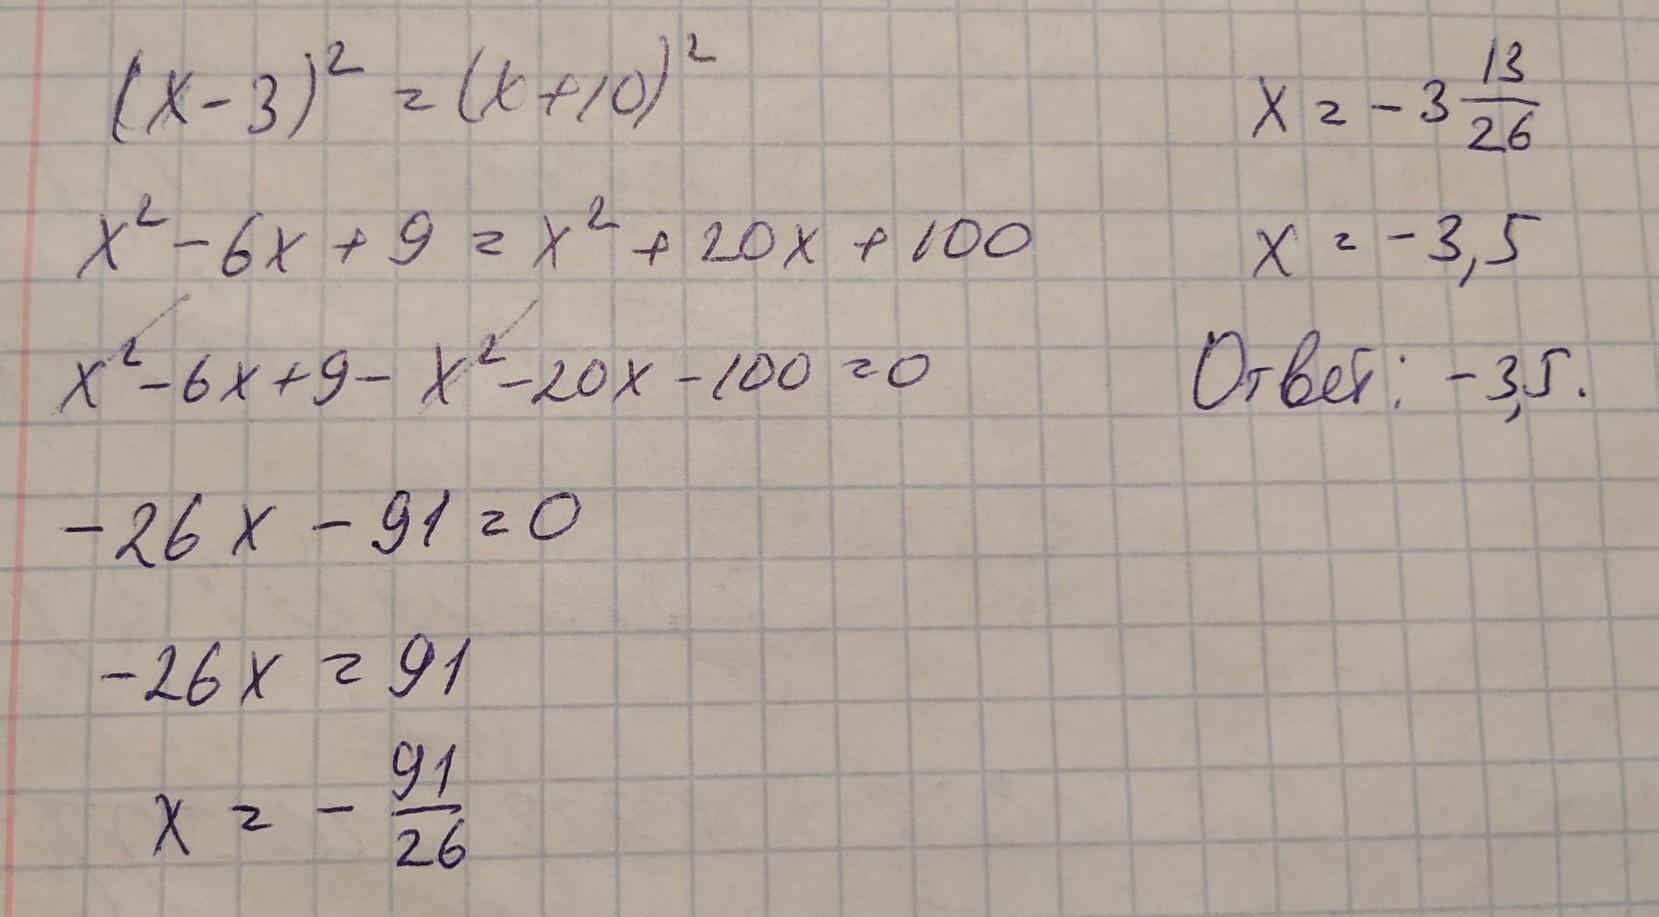 (x-3)² = (x+10)²
x² - 6x + 9 = x² + 20x + 100
x² - 6x + 9 - x² - 20x - 100 = 0
-26x - 91 = 0
-26x = 91
x = - 91/26
x = -3 13/26
x = -3,5
Ответ: -3,5.